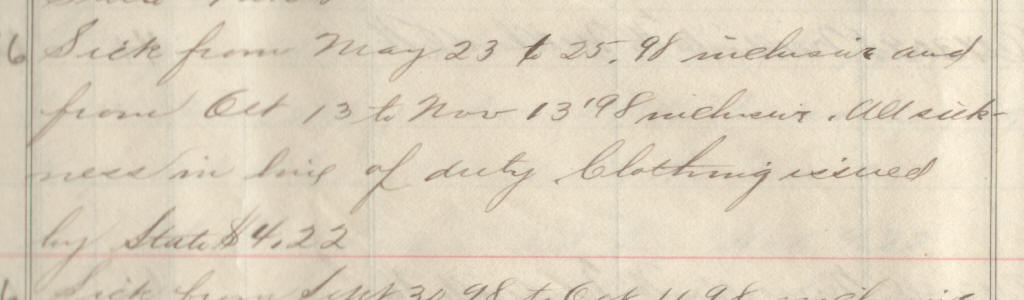 6 Sick from May 23 to 25, 98 inclusive and
from Oct 13 to Nov 13 '98 inclusive. All sick-
ness in line of duty Clothing issued
by State $4.22
Sick from Sept 30 98 to Oct 98